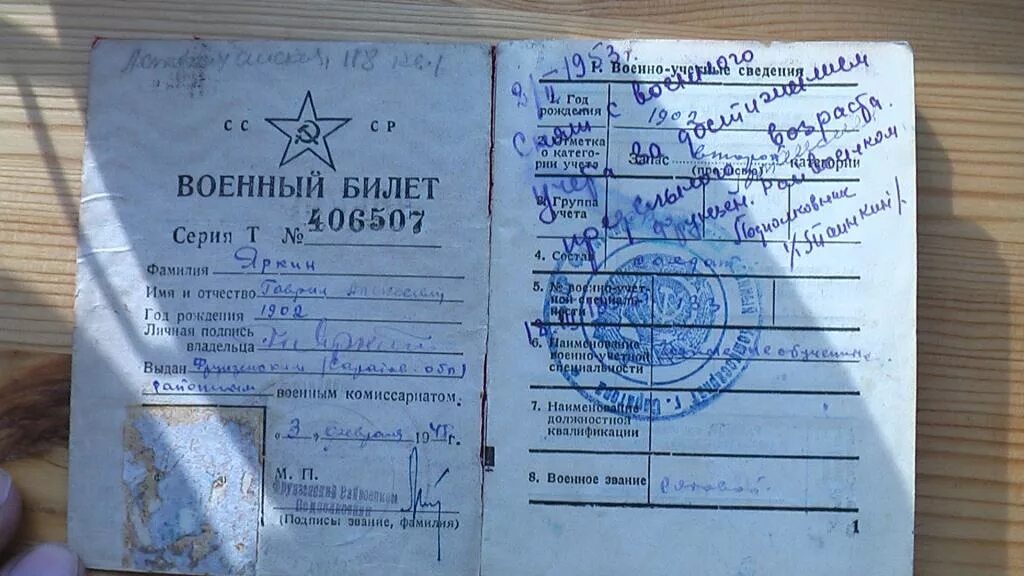 Астраханская, 118 кв. 1
СС СР
ВОЕННЫЙ БИЛЕТ
Серия Т № 406507
Фамилия Яркин
Имя и отчество Гаврил Алексеевич
Год рождения 1902
Личная подпись
владельца
Выдан Фрунзенским (Саратов. обл)
районным военным комиссариатом.
"3" февраля 1948 г.
М. П.
Фрунзенский Райвоенком
Подполковник
(Подписи звание, фамилия)
I. Военно-учетные сведения
1. Год
рождения 1902
Отметка
о катего-
рии учета Запас второй категории
(прописью)
3. Группа
учета
4. Состав солдат
5. № военно-учет-
ной специаль-
ности
6. Наименование
военно-учетной
специальности
7. Наименование
должностной
квалификации
8. Военное звание рядовой
1
1953 г.
Снят с военного
учета за достижением
предельного возраста.
Фрунзен. райвоенком
Подполковник
Комиссариат г. Саратова